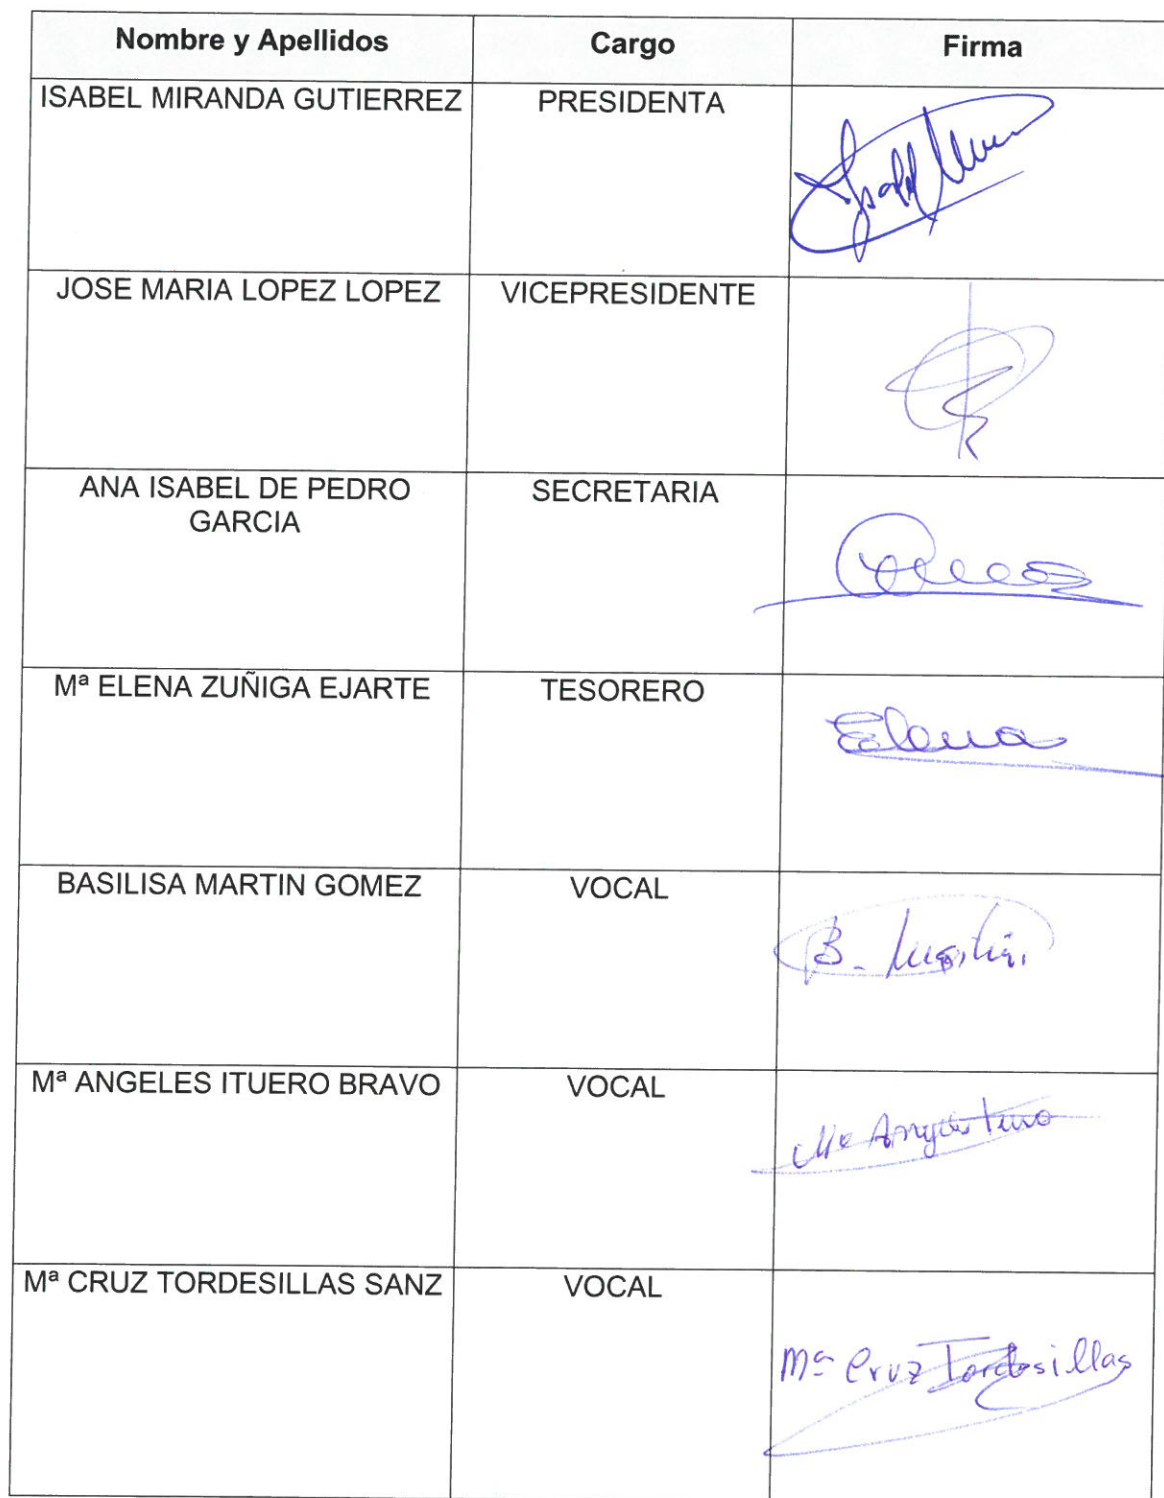 Nombre y Apellidos Cargo Firma
ISABEL MIRANDA GUTIERREZ PRESIDENTA
Isabel
JOSE MARIA LOPEZ LOPEZ VICEPRESIDENTE
ANA ISABEL DE PEDRO SECRETARIA
GARCIA
Mª ELENA ZUÑIGA EJARTE TESORERO
Elena
BASILISA MARTIN GOMEZ VOCAL
B. Martín
Mª ANGELES ITUERO BRAVO VOCAL
Mª
Mª CRUZ TORDESILLAS SANZ VOCAL
Mª Cruz Tordesillas